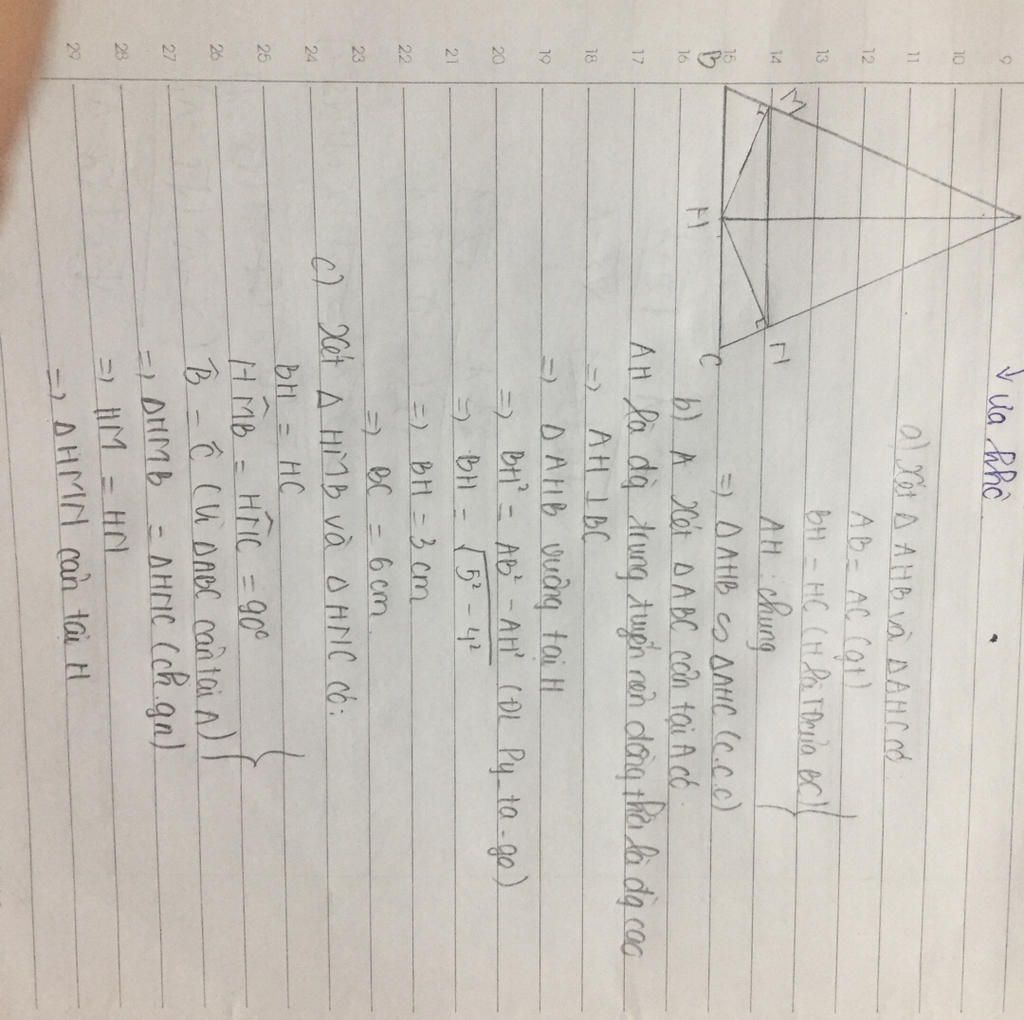 ↓ vừa phô
a) Xét Δ AHB và Δ AHC có:
AB = AC (gt)
BH = HC (H là TĐ của BC)
AH : chung
=> Δ AHB ∽ Δ AHC (c.c.c)
b) A Xét Δ ABC cân tại A có.
AH là đg trung tuyến nên đồng thời là đg cao
=> AH ⊥ BC
=> Δ AHB vuông tại H
=> BH² = AB² - AH² (ĐL Py-ta-go)
=> BH = √5² - 4²
=> BH = 3 cm
=> BC = 6 cm.
c) Xét Δ HMB và Δ HNC có:
BH = HC
HM̂B = HN̂C = 90°
B̂ = Ĉ (Vì ΔABC cân tại A)
=> ΔHMB = ΔHNC (ch.gn)
=> HM = HN
=> ΔHMN cân tại H
M
N
B
H
C
9
10
11
12
13
14
15
16
17
18
19
20
21
22
23
24
25
26
27
28
29